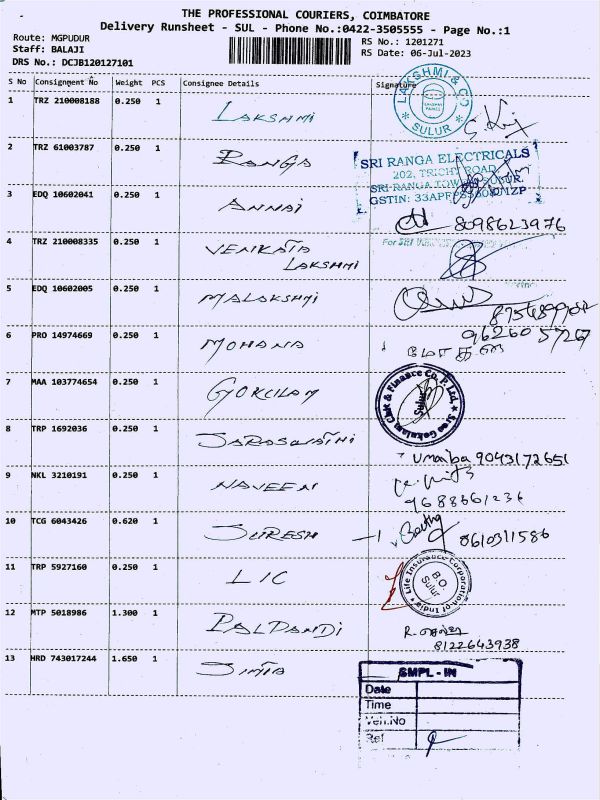 THE PROFESSIONAL COURIERS, COIMBATORE
Delivery Runsheet - SUL - Phone No.:0422-3505555 - Page No.:1
Route: MGPUDUR
Staff: BALAJI
DRS No.: DCJB120127101
RS No.: 1201271
RS Date: 06-Jul-2023
S No Consignment No Weight PCS Consignee Details Signature
1 TRZ 210008188 0.250 1 LAKSHMI
LAKSHMI & CO
SULUR
2 TRZ 61003787 0.250 1 RANGA
SRI RANGA ELECTRICALS
202, TRICHY ROAD
SRI RANGA TOWER SULUR.
3 EDQ 10602041 0.250 1 ANNAI
8098623976
4 TRZ 210008335 0.250 1 VENKATA
LAKSHMI
For SRI
5 EDQ 10602005 0.250 1 MALAKSHMI
6 PRO 14974669 0.250 1 MOHANA
9626057267
மோகனா
7 MAA 103774654 0.250 1 GOKULAM
Sree Gokulam Chit & Finance Co. P. Ltd.
Sulur
8 TRP 1692036 0.250 1 SARASWATHI
Umaiba 9043172651
9 NKL 3210191 0.250 1 NAVEEN
9688661236
10 TCG 6043426 0.620 1 SURESH
8610311586
11 TRP 5927160 0.250 1 LIC
Life Insurance Corporation of India
B.O.
Sulur
12 MTP 5018986 1.300 1 PALPANDI
R.
8122643938
13 HRD 743017244 1.650 1
SMPL - IN
Date
Time
Veh.No
Ref